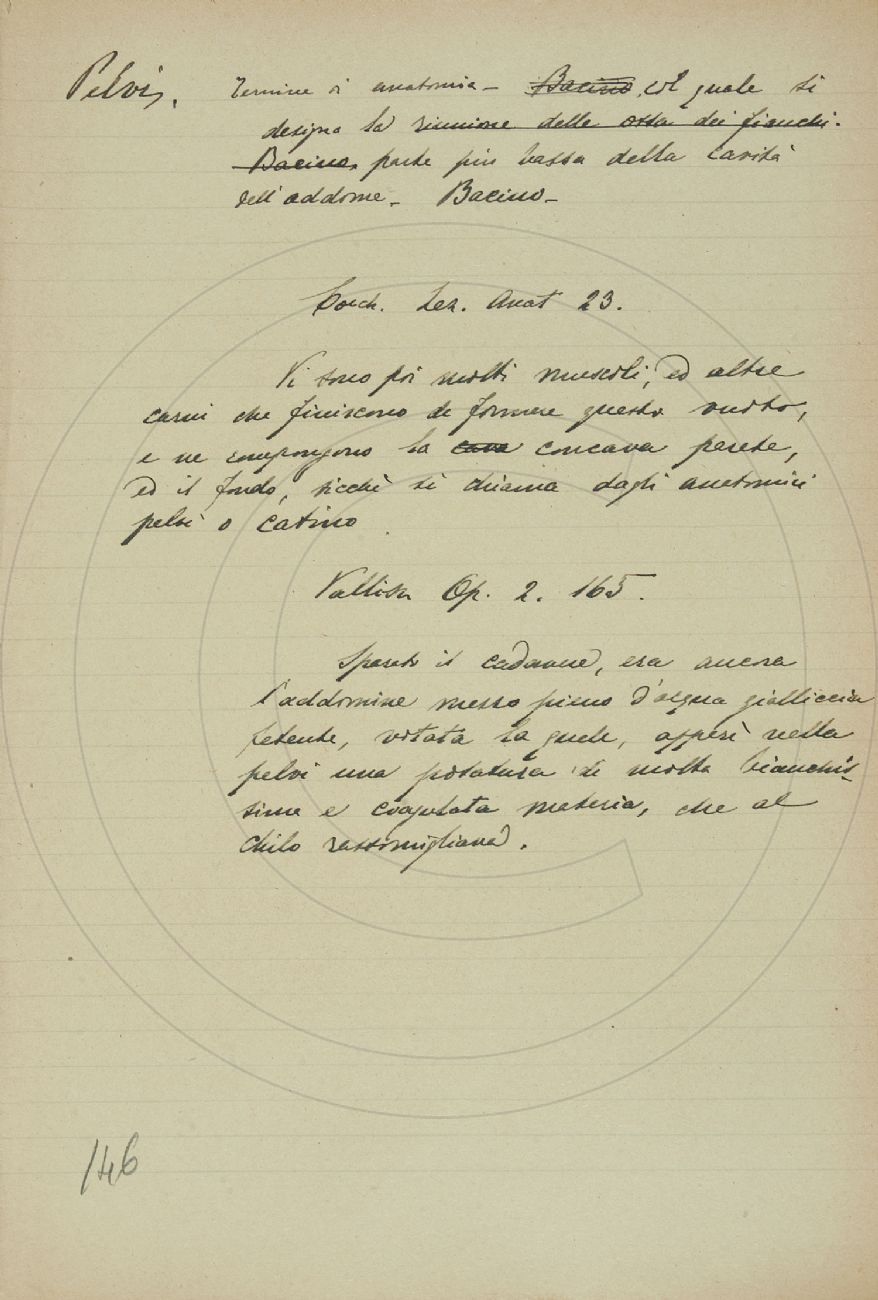 Pelvi, Termine di anatomia - Bacino, col quale si
designa la riunione delle ossa dei fianchi.
Bacino, parte più bassa della cavità
dell'addome - Bacino -
Cocch. Lez. Anat 23.
Vi sono poi molti muscoli, ed altre
carni che finiscono di formare questo vuoto,
e ne compongono la cava concava parete,
ed il fondo, sicchè si chiama dagli anatomici
pelvi o catino
Vallisn Op. 2. 165.
Sparato il cadavere, era ancora
l'addomine mezzo pieno d'acqua gialliccia
fetente, votata la quale, apparì nella
pelvi una posatura di molta bianchis-
sima e coagulata materia, che al
chilo rassomigliava.
146